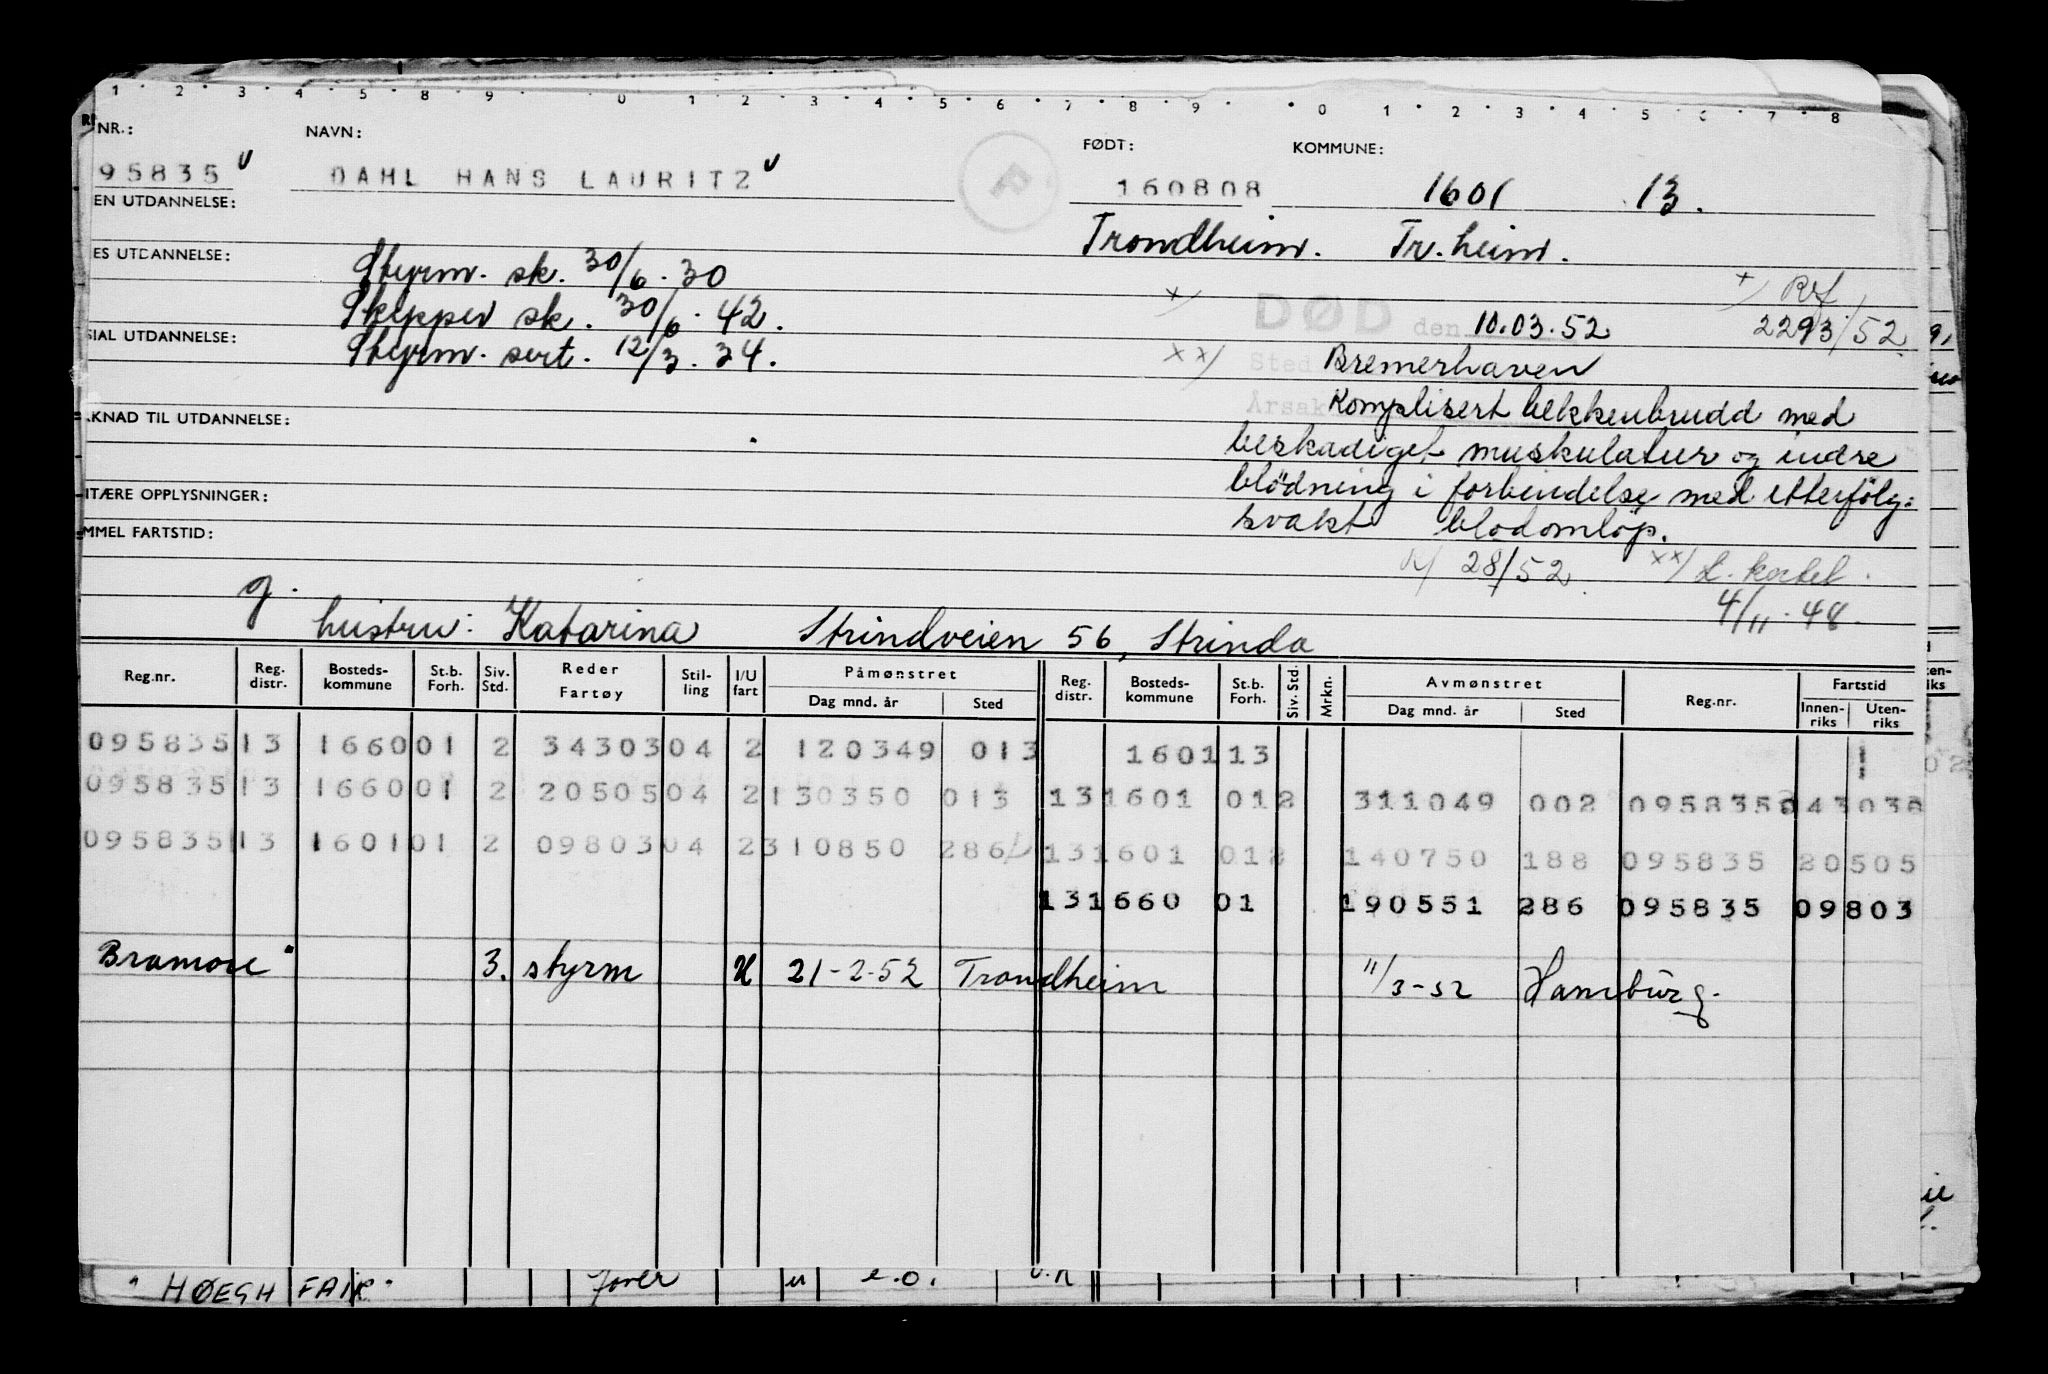 1 · 2 · 3 · 4 · 5 · 8 · 9 · 0 · 1 · 2 · 3 · 4 · 5 · 6 · 7 · 8 · 9 · 0 · 1 · 2 · 3 · 4 · 5 · 7 · 8
NR.: NAVN: FØDT: KOMMUNE:
95835 DAHL HANS LAURITZ P 160808 1601 13.
EN UTDANNELSE: Trondheim. Tr.heim.
ES UTDANNELSE: Styrm. sk. 30/6. 30
Skipper sk. 30/6. 42.
SIAL UTDANNELSE: Styrm. sert. 12/3. 34.
x/ DØD den 10.03.52 x/ Ref 2293/52
xx/ Sted Bremerhaven
Årsak Komplisert bekkenbrudd med
RKNAD TIL UTDANNELSE: beskadiget muskulatur og indre
ITÆRE OPPLYSNINGER: blödning i forbindelse med etterfölg:
MMEL FARTSTID: svakt blodomløp.
28/52 xx/ L. kortet.
g. 4/11. 48.
hustru: Katarina Strindveien 56, Strinda
Reg.nr. Reg. distr. Bosteds-kommune St.b. Forh. Siv. Std. Reder Fartøy Stil-ling I/U fart Påmønstret Dag mnd. år Sted Reg. distr. Bosteds-kommune St.b. Forh. Siv. Std. Mrkn. Avmønstret Dag mnd. år Sted Reg.nr. Fartstid Innen-riks Uten-riks
095835 13 1660 01 2 34303 04 2 120349 013 1601 13
095835 13 1660 01 2 20505 04 2 130350 013 13 1601 01 2 311049 002 095835
095835 13 1601 01 2 09803 04 2 310850 286 13 1601 01 2 140750 188 095835 20505
13 1660 01 190551 286 095835 09803
3. styrm U 21-2-52 Trondheim 11/3-52 Hamburg.
"HØEGH FAIR" e.o.